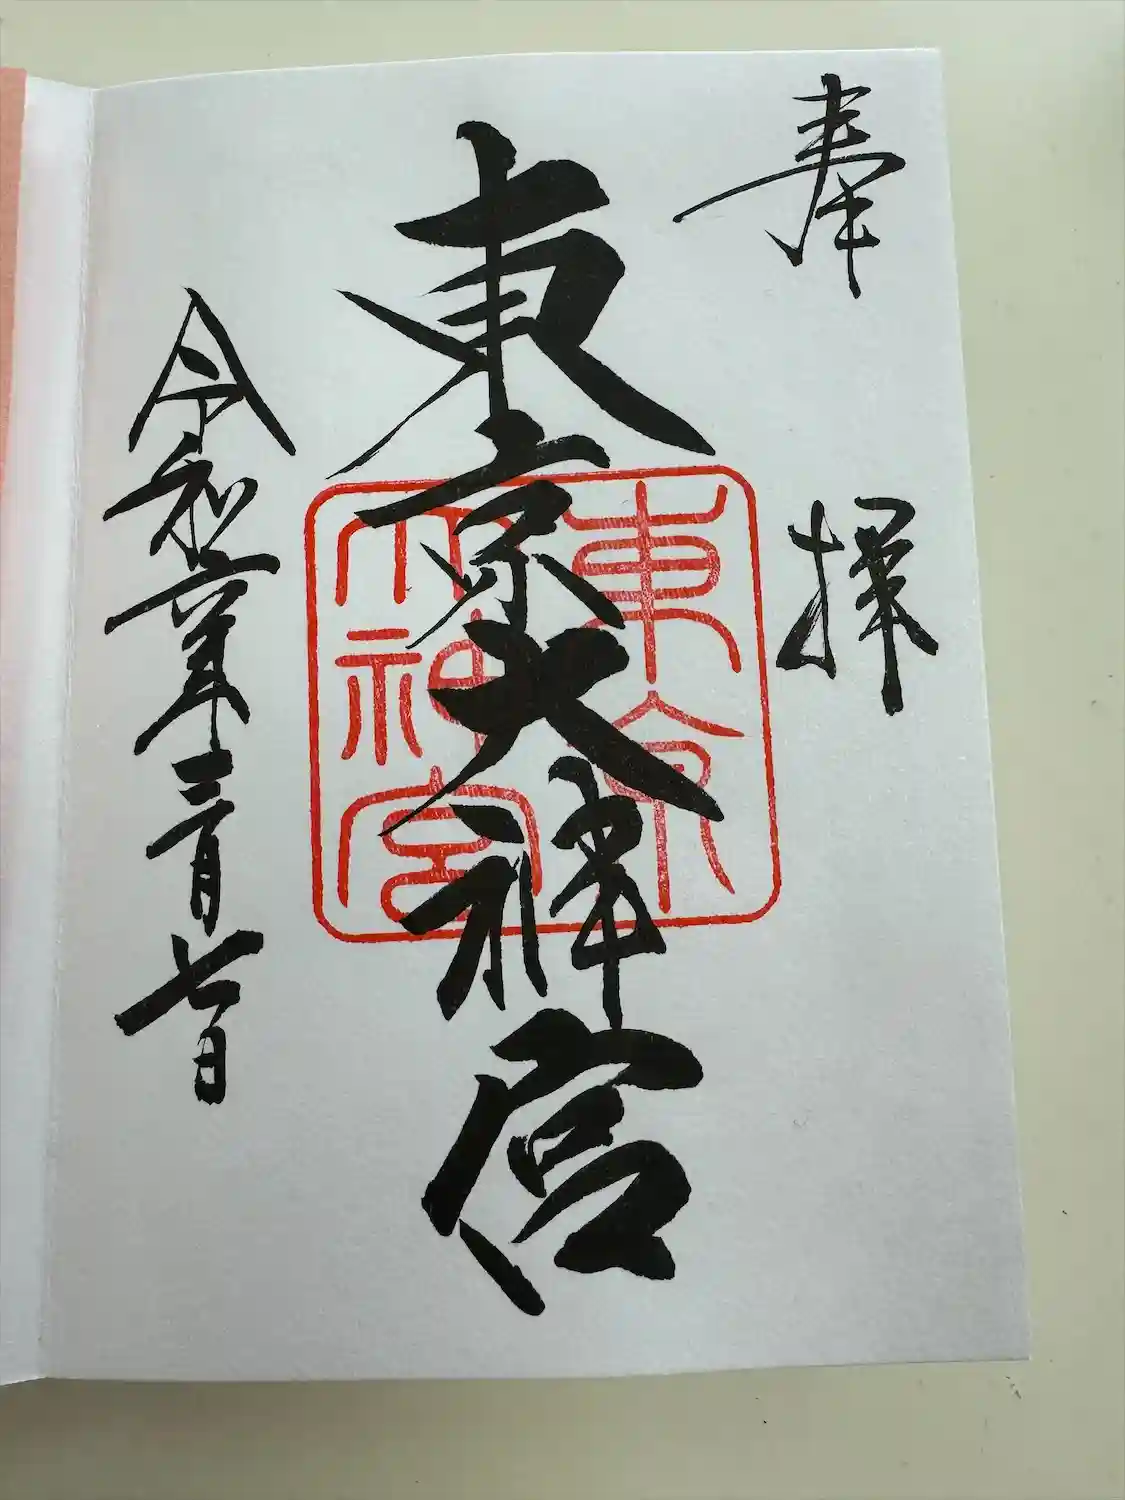 奉拝
東京大神宮
東京
大神宮
令和六年三月七日